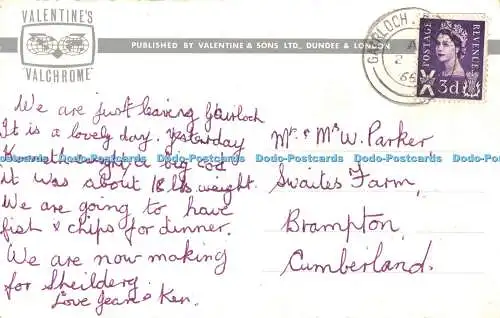 VALENTINE'S
VALCHROME
PUBLISHED BY VALENTINE & SONS LTD., DUNDEE & LONDON
GAIRLOCH.
A
2
66
POSTAGE
REVENUE
3d
We are just leaving Gairloch
It is a lovely day. Yesterday
Ken thought a big cod
it was about 18 lbs weight.
We are going to have
fish & chips for dinner.
We are now making
for Sheilderg.
Love Jean & Ken.
Mr & Mrs W. Parker
Swaites Farm,
Brampton,
Cumberland.
Dodo-Postcards Dodo-Postcards Dodo-Postcards Dodo-Postcards Dodo-Postcards